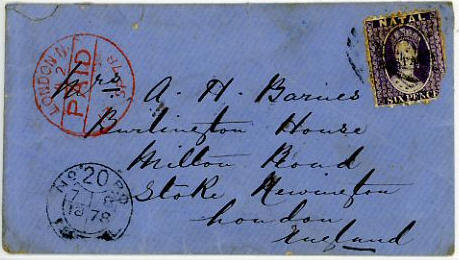 NATAL
SIX PENCE
LONDON N.
PAID
Mrs A. H. Barnes
Burlington House
Milton Road
Stoke Newington
London
England
No. 20
1878